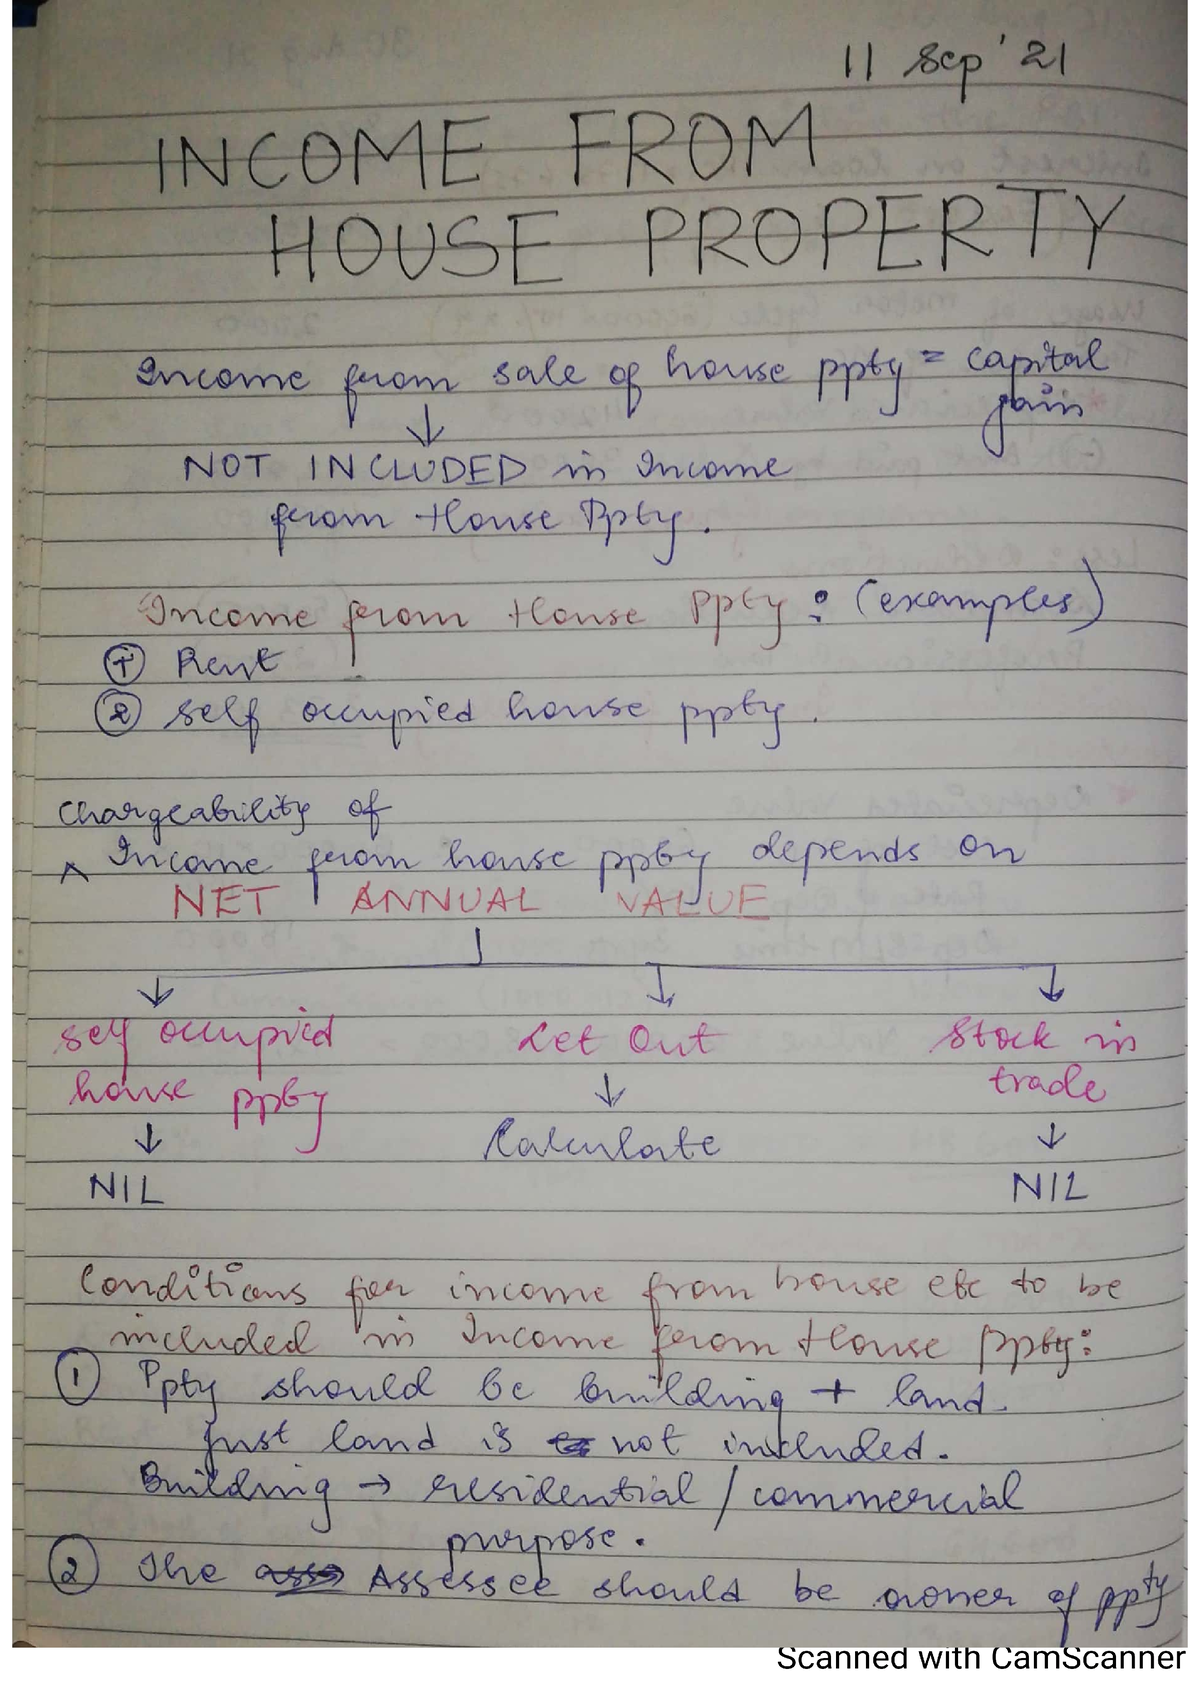 11 Sep '21
INCOME FROM
HOUSE PROPERTY
Income from sale of house ppty = capital
gain
↓
NOT INCLUDED in Income
from House Ppty.
Income from House Ppty : (examples)
① Rent
② self occupied house ppty.
Chargeability of
^ Income from house ppty depends on
NET ANNUAL VALUE
↓ ↓ ↓
self occupied Let Out Stock in
house ppty ↓ trade
↓ Calculate ↓
NIL NIL
Conditions for income from house etc to be
included in Income from House Ppty:
① Ppty should be building + land.
Just land is not included.
Building → residential / commercial
purpose.
② The Assessee should be owner of ppty
Scanned with CamScanner